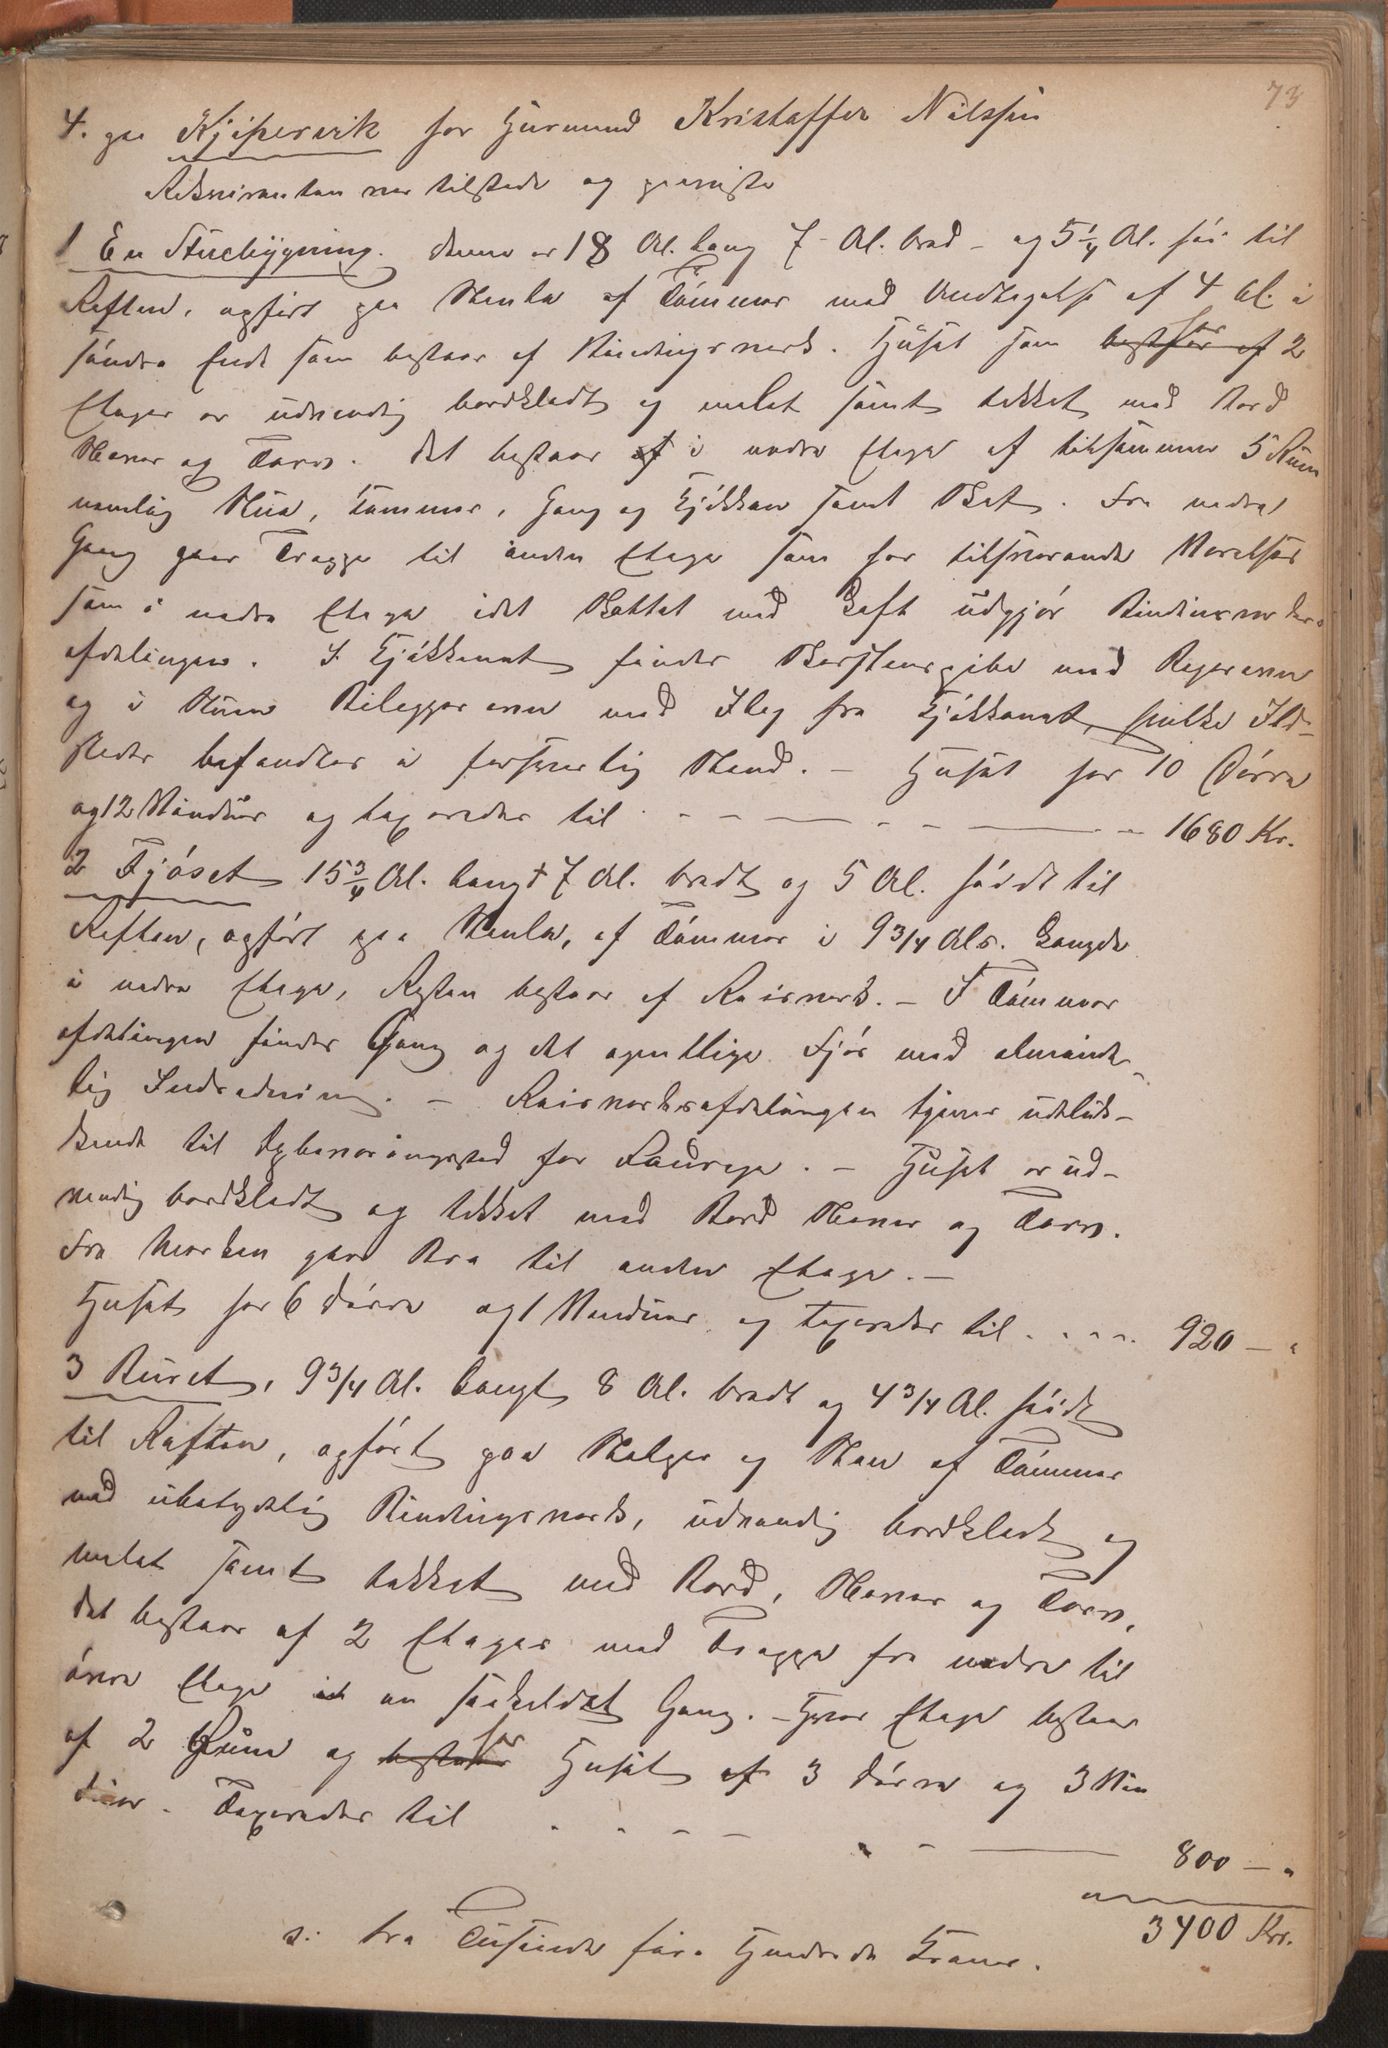 73
4. paa Kjipervik hos Husmand Kristoffer Nilssen
Rekvirenten var tilstede og paaviste
1 En Stuebygning. Denne er 18 Al. lang 7 Al. bred og 5 1/4 Al. høi til
Raften, opført paa Stenlo af Tømmer med Undtagelse af 4 Al. i
søndre Ende som bestaar af Bindingsverk. Huset som bestaar af har 2
Etager er udvendig bordklædt og malet samt tækket med Bord
Næver og Törv. Det bestaar af i nedre Etage af tilsammen 5 Rum
nemlig Stue, Kammer, Gang og Kjøkken samt Skot. Fra nedre
Gang gaar Trappe til anden Etage som har tilsvarende Værelser
som i nedre Etage idet Skottet med Loft udgjør Bindingsverks-
afdelingen. I Kjøkkenet findes Skorstenspibe med Rogovn
og i Stuen Bilæggerovn med Ilæg fra Kjøkkenet, hvilke Ild-
steder befandtes i forsvarlig Stand. – Huset har 10 Dørre
og 12 Vinduer og taxeredes til - - - 1680 Kr.
2 Fjøset 15 3/4 Al. langt 7 Al. bredt og 5 Al. høidt til
Raften, opført paa Stenlo, af Tømmer i 9 3/4 Als. Længde
i nedre Etage, Resten bestaar af Reisverk. – I Tømmer
afdelingen findes Gang og det egentlige Fjøs med alminde-
lig Indredning. – Reisverksafdelingen tjener udeluk-
kende til Opbevaringssted for Fourage. – Huset er ud-
vendig bordklædt og tækket med Bord Næver og Törv.
Fra Marken gaar Bro til anden Etage. –
Huset har 6 Dørre og 1 Vindue og taxeredes til . . . . 920 – "
3 Buret, 9 3/4 Al. langt 8 Al. bredt og 4 3/4 Al. høidt
til Raften, opført paa Stolper og Sten af Tømmer
med ubetydelig Bindingsverk, udvendig bordklædt og
malet samt tækket med Bord, Næver og Törv,
det bestaar af 2 Etager med Trappe fra nedre til
øvre Etage i en særskildt Gang. – Hver Etage bestaar
af 2 Rum og bestaar har Huset af 3 Dørre og 3 Vin
duer. Taxeredes til . . - - - - 800 – "
3400 Kr.
s: tre Tusinde fire Hundrede Kroner.